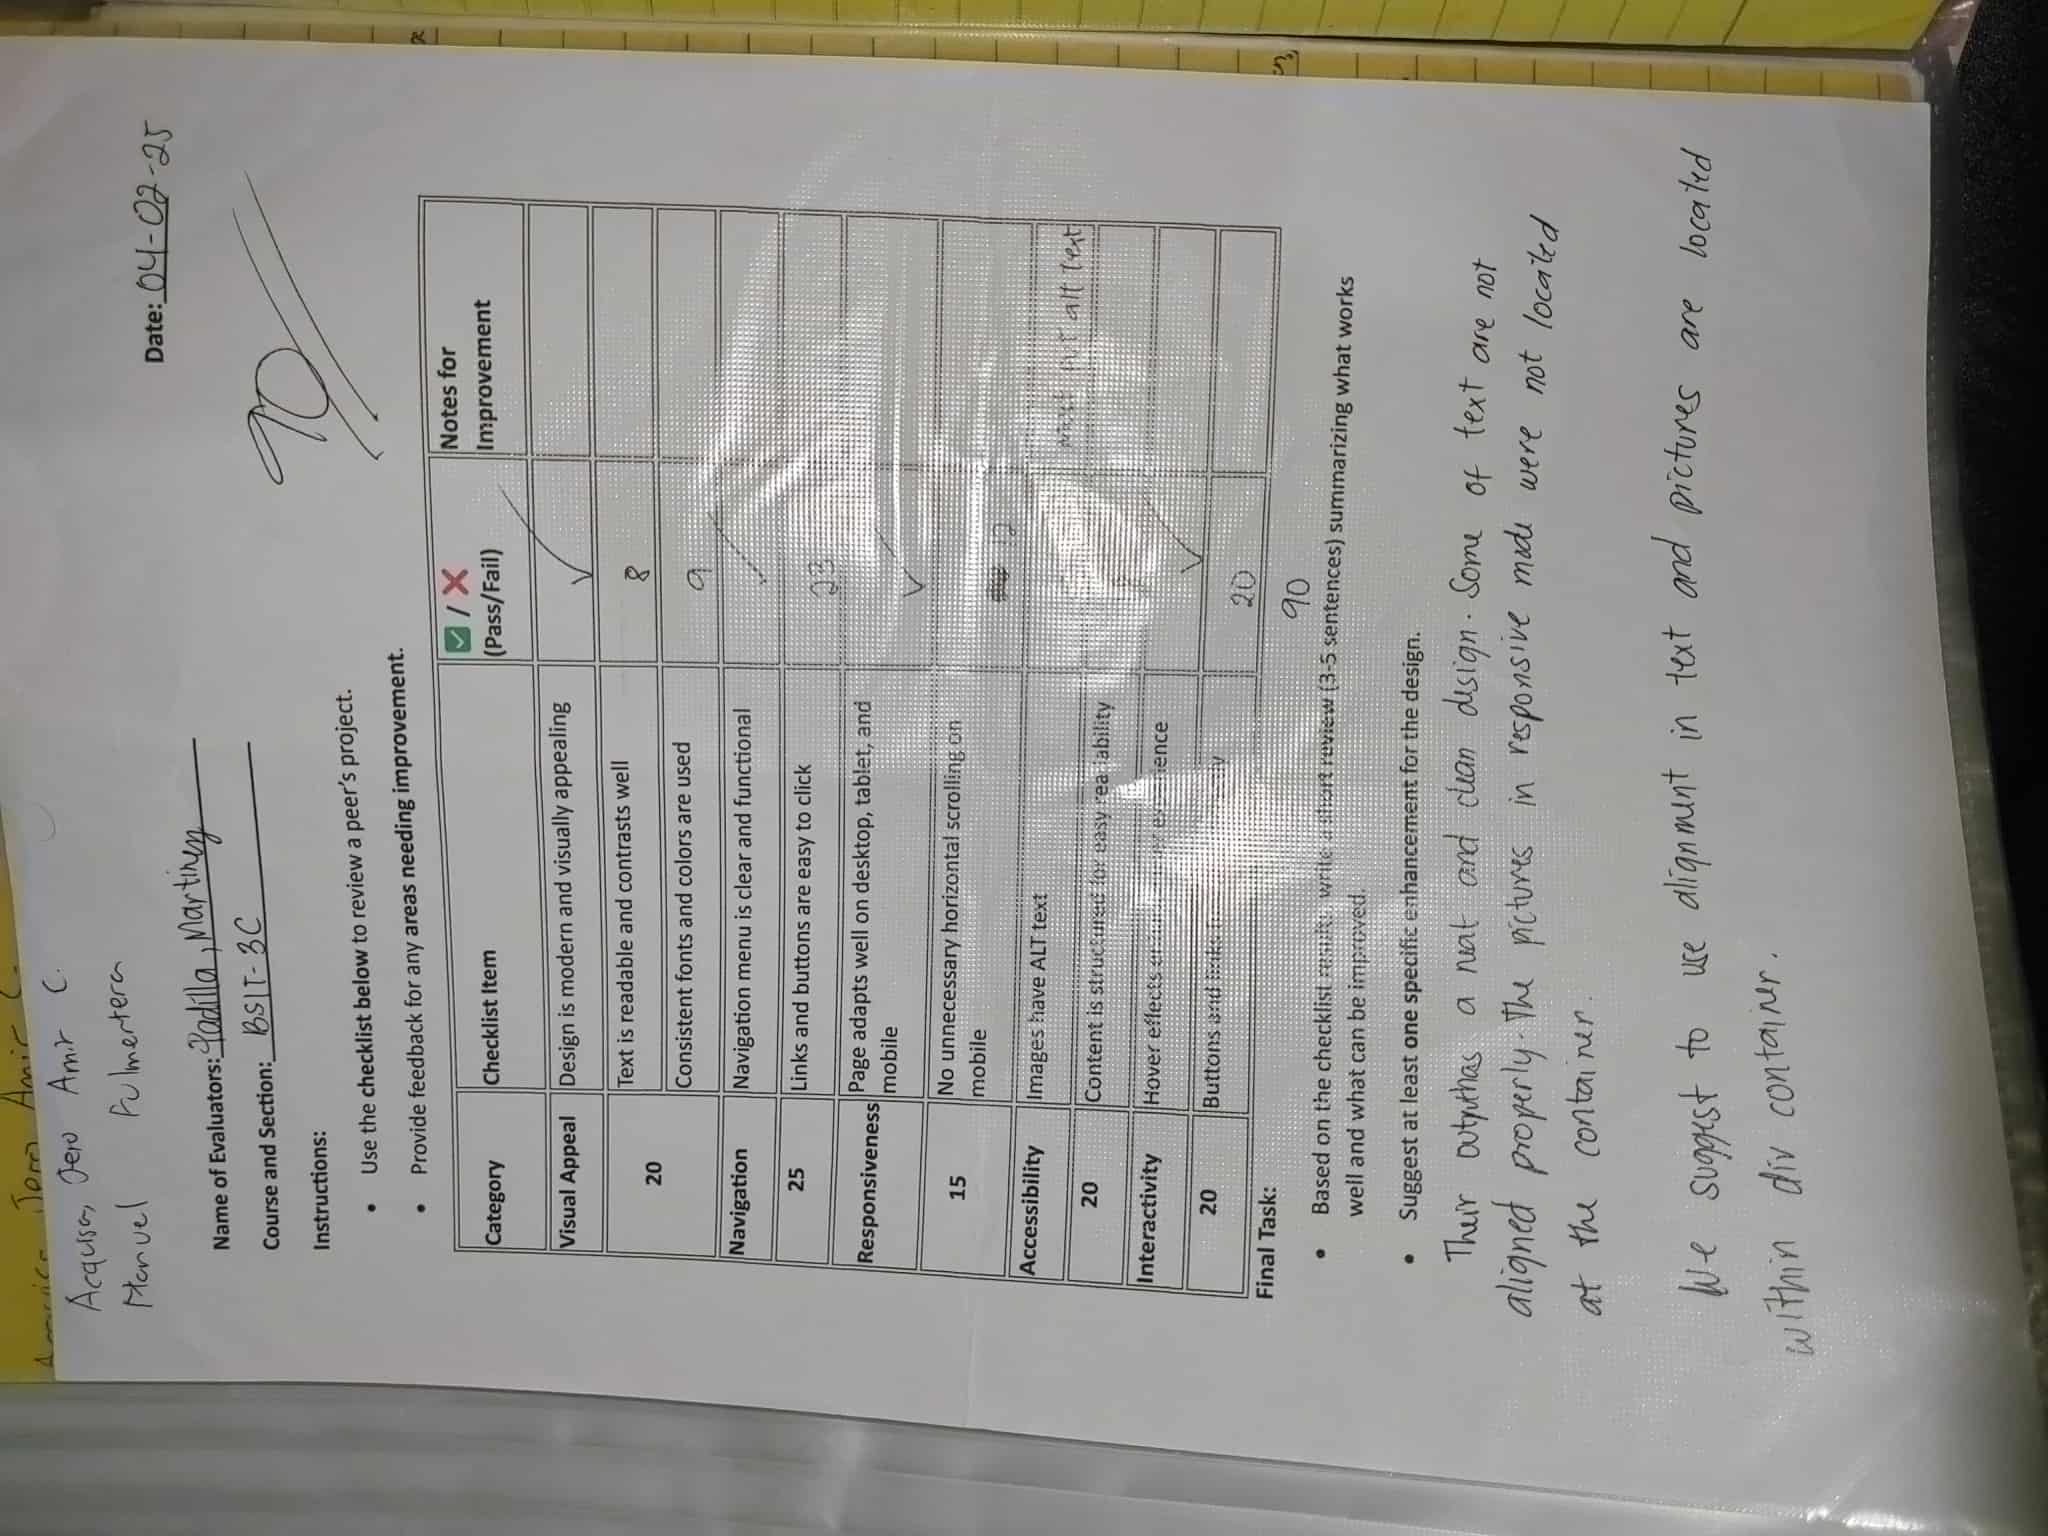 Acquisa, Jero Amir C.
Manuel Fulmertera
Date: 04-02-25
Name of Evaluators: Padilla, Martinez
Course and Section: BSIT-3C
90
Instructions:
• Use the checklist below to review a peer's project.
• Provide feedback for any areas needing improvement.
Category Checklist Item ✅ / ❌ (Pass/Fail) Notes for Improvement
Visual Appeal Design is modern and visually appealing ✓
20 Text is readable and contrasts well 8
Consistent fonts and colors are used 9
Navigation Navigation menu is clear and functional ✓
25 Links and buttons are easy to click 23
Responsiveness Page adapts well on desktop, tablet, and mobile ✓
15 No unnecessary horizontal scrolling on mobile 12
Accessibility Images have ALT text alt text
20 Content is structured for easy readability
Interactivity Hover effects experience ✓
20 Buttons and links 20
90
Final Task:
• Based on the checklist results, write a short review (3-5 sentences) summarizing what works
well and what can be improved.
• Suggest at least one specific enhancement for the design.
Their outputhas a neat and clean design. Some of text are not
aligned properly. The pictures in responsive mode were not located
at the container.
We suggest to use alignment in text and pictures are located
within div container.